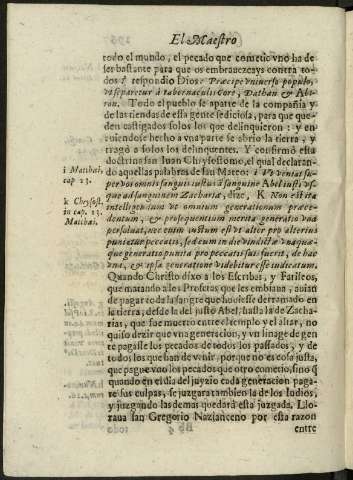 El Maestro
todo el mundo, el pecado que cometio vno ha de
ser bastante para que os embrauezcays contra to-
dos? respondio Dios: Præcipe vniuerso populo,
vt separetur à tabernaculis Core, Dathan & Abi-
ron. Todo el pueblo se aparte de la compañia y
de las tiendas de esta gente sediciosa, para que que-
den castigados solos los que delinquieron: y en
ruiendose hecho a vna parte se abrio la tierra, y
tragó a solos los delinquentes. Y confirmó esta
doctrina san Iuan Chrysostomo, el qual declaran-
do aquellas palabras de san Mateo: i Vt veniat su-
per vos omnis sanguis iustus à sanguine Abel iusti vs-
que ad sanguinem Zachariæ, dize, K. Non est ita
intelligendum vt omnium generationum præce-
dentum, & prosequentium merita generatio vna
persoluat, nec enim iustum est vt alter pro alterius
punietur peccatis, sed cum in die vindictæ vnaquæ-
que generatio punita pro peccatis suis fuerit, de hac
vna, & ipsa generatione videbitur esse indicatum.
Quando Christo dixo a los Escribas, y Fariseos,
que matando a los Profetas que les embiaua, auian
de pagar toda la sangre que huuiesse derramado en
la tierra, desde la del justo Abel, hasta la de Zacha-
rias, que fue muerto entre el templo y el altar, no
quiso dezir que vna generacion, y vn linage de gen
te pagasse los pecados de todos los passados, y de
todos los que han de venir, porque no es cosa justa,
que pague vno los pecados que otro cometio, sino q̃
quando en el dia del juyzio cada generacion paga-
re sus culpas, se juzgara tambien la de los Iudios,
y juzgando las demas quedará esta juzgada. Llo-
raua san Gregorio Nazianceno por esta razon
entre
i Matthæi.
cap 23.
k Chrysost.
in cap. 23.
Matthæi.